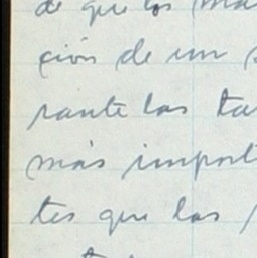 de que los ma
ción de un s
rante las ta
más import
tes que las